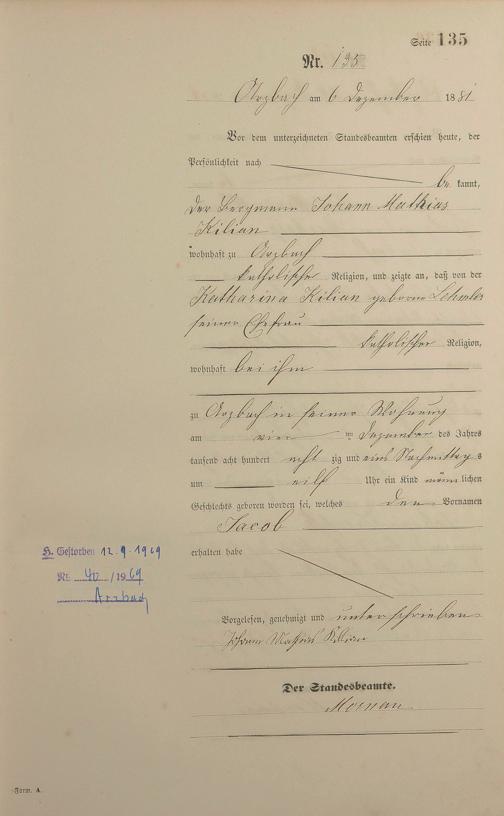 Seite 135
Nr. 135
Arzbach am 6 Dezember 1881
Vor dem unterzeichneten Standesbeamten erschien heute, der
Persönlichkeit nach
be kannt,
der Bergmann Johann Mathias
Kilian
wohnhaft zu Arzbach
katholischer Religion, und zeigte an, daß von der
Katharina Kilian geborne
seiner Ehefrau
katholischer Religion,
wohnhaft bei ihm
zu Arzbach in seiner Wohnung
am vier ten Dezember des Jahres
tausend acht hundert acht zig und eins Nachmittag s
um eilf Uhr ein Kind männ lichen
Geschlechts geboren worden sei, welches den Vornamen
Jacob
erhalten habe
H. Gestorben 12.9.1969
Nr. 40 /1969
Arzbach
Vorgelesen, genehmigt und unterschrieben
Johann Mathias Kilian
Der Standesbeamte.
Form. A.